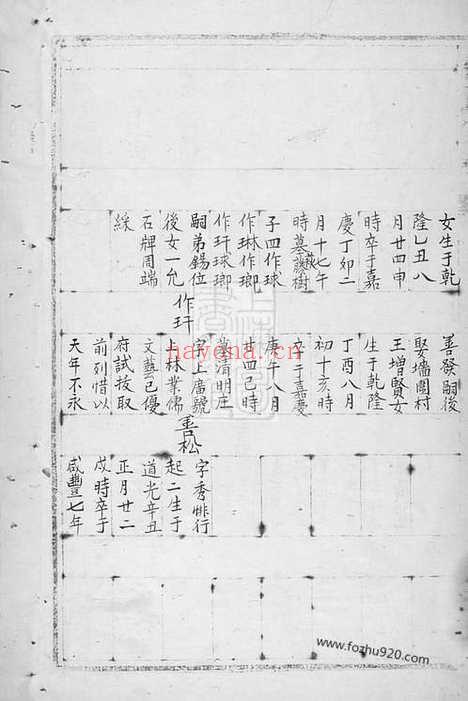 女生于乾
隆乙丑八
月廿四申
時卒于嘉
慶丁卯二
月十七午
時墓
子四作球
作琳作瑯
作玕球瑯
嗣弟錫位
後女一允
石牌周端
綵
善發嗣後
娶墻圍村
王增賢女
生于乾隆
丁酉八月
初十亥時
卒于嘉慶
庚午八月
廿四己時
墓清明庄
作玕
字上廣號
上林業儒
文藝已優
府試拔取
前列惜以
天年不永
善松
字秀
起二生于
道光辛丑
正月廿二
戌時卒于
咸豐七年
nayona.cn
www.fozhu920.com